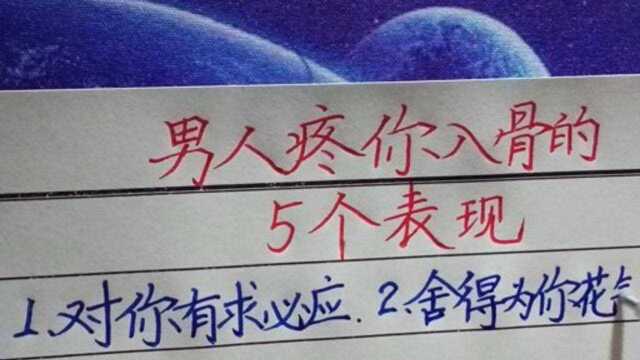 男人疼你入骨的
5个表现
1、对你有求必应.2、舍得为你花